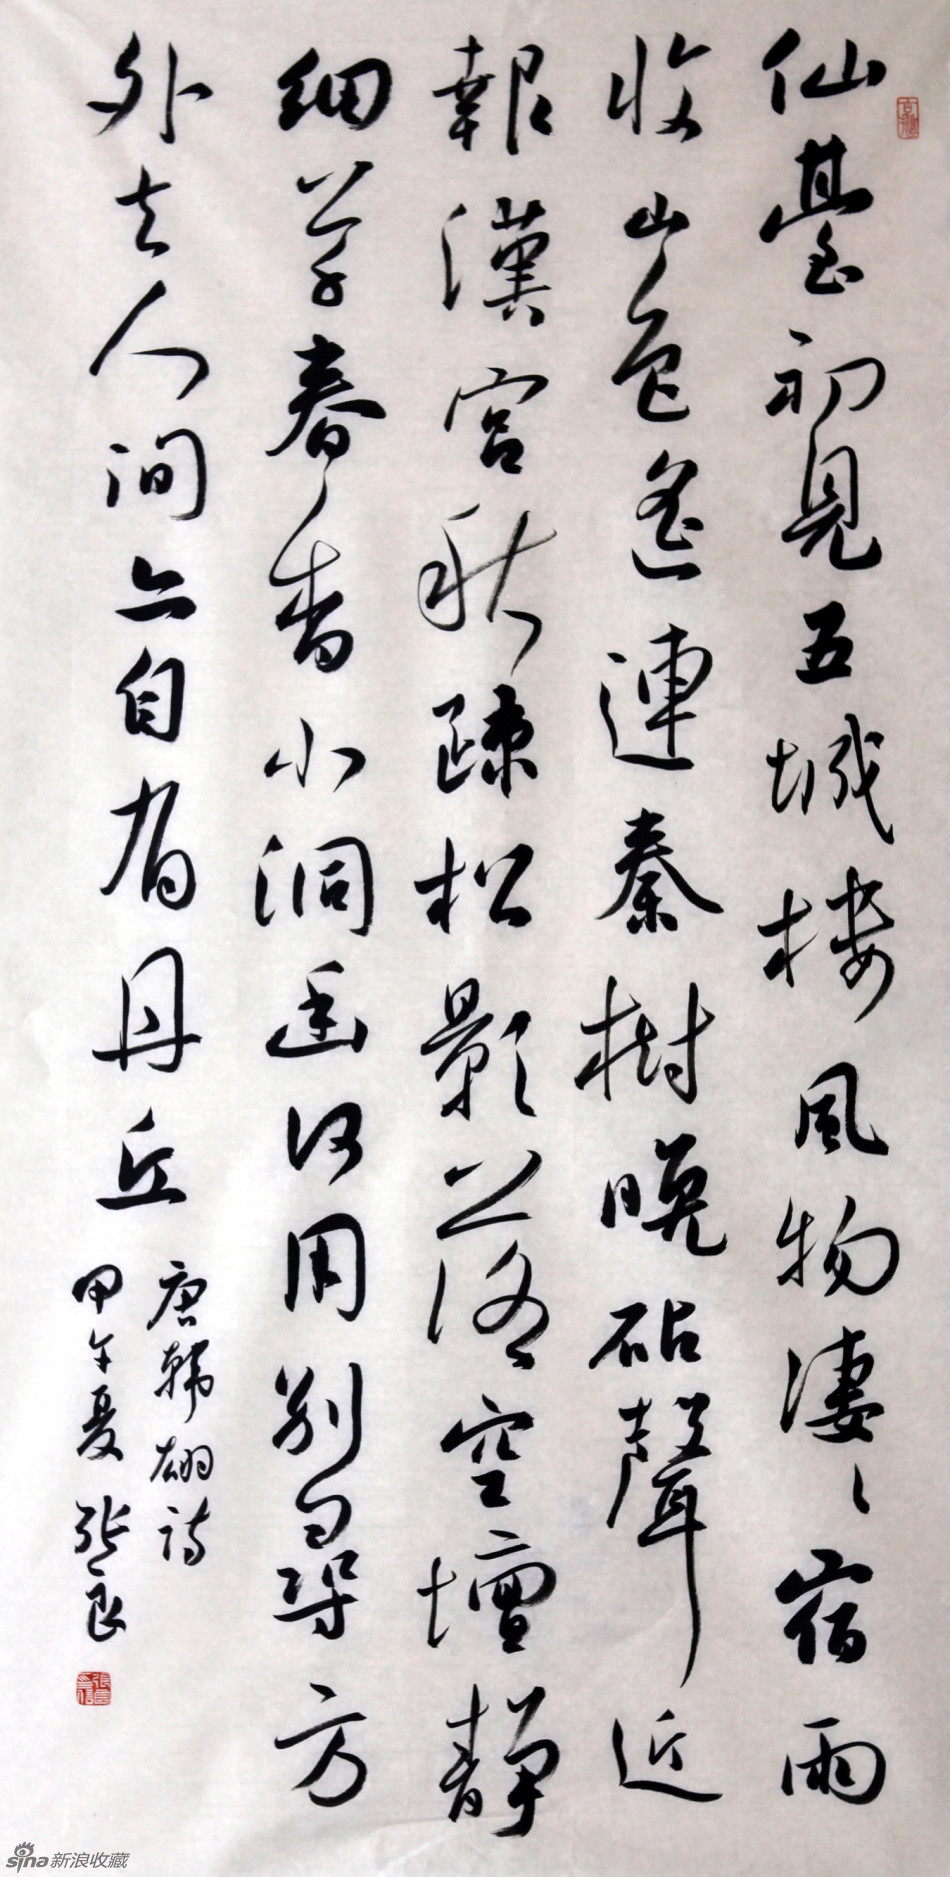 仙臺初見五城樓風物凄〻宿雨
收山色遙連秦樹晚砧聲近
報漢宮秋疎松影落空壇靜
細草春香小洞幽何用別尋方
外去人间亦自有丹丘
唐韩翃诗
甲午夏张良
sina新浪收藏